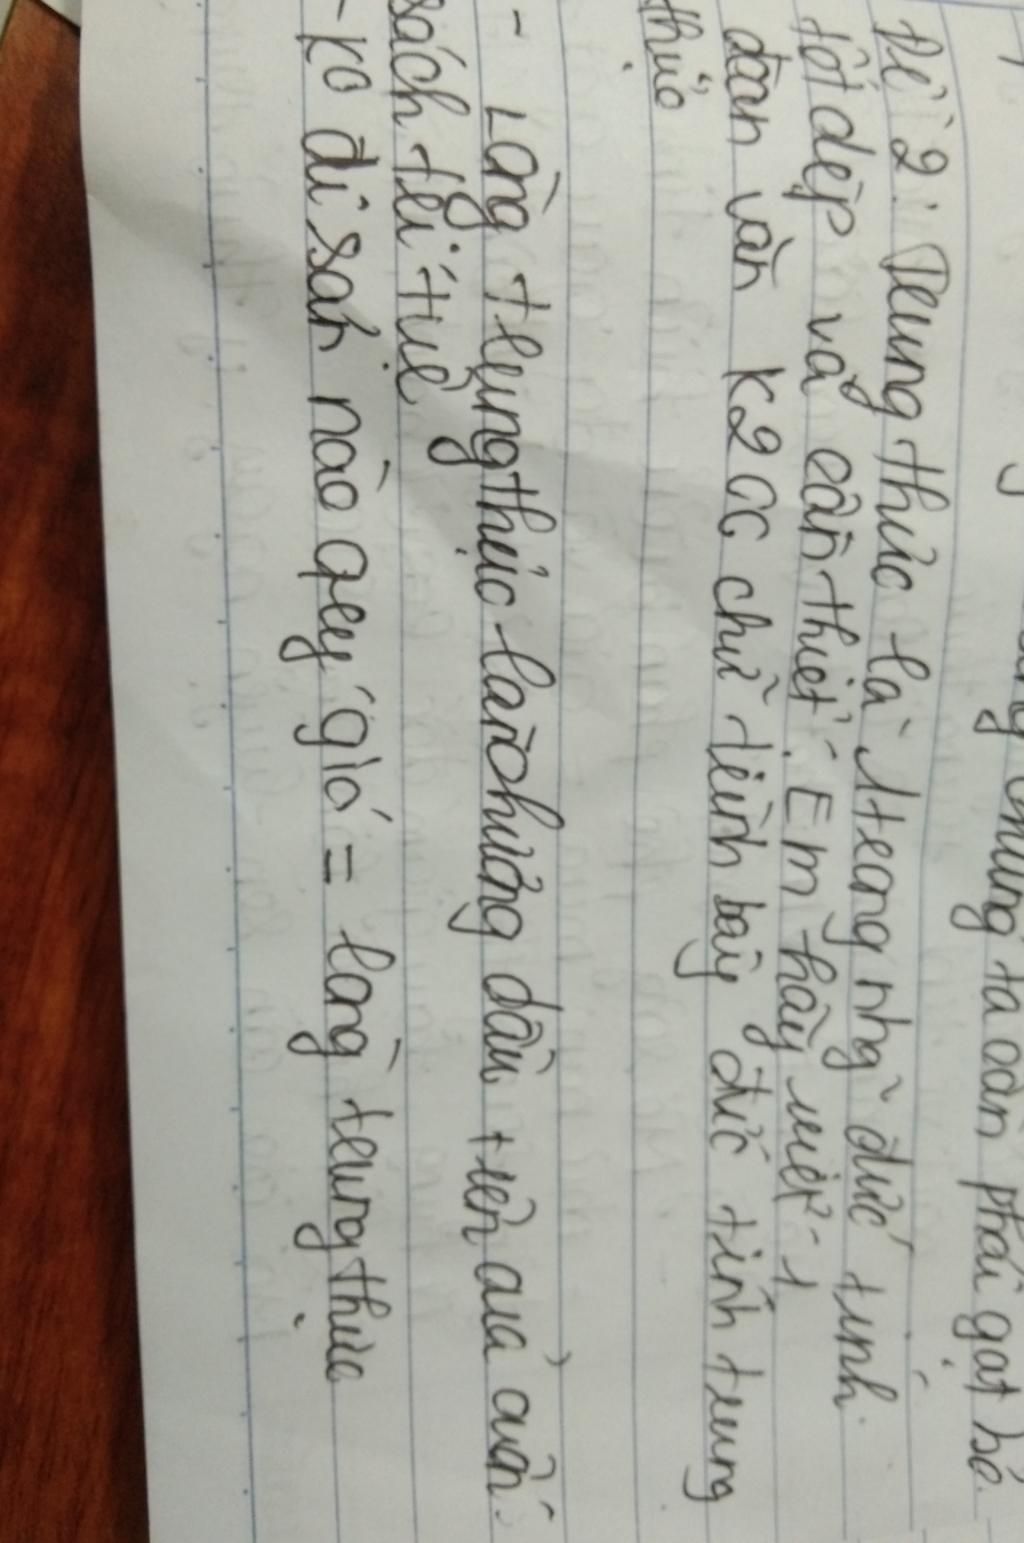 chúng ta cần phải gạt bỏ
Đề 2: Trung thực là 1 trong nhg~ đức tính
tốt đẹp và cần thiết. Em hãy viết 1
đoạn văn K200 chữ trình bày đức tính trung
thực
- Lòng trung thực là chương đầu tiên của cuốn
sách trí tuệ
- Ko di sản nào quý giá = lòng trung thực